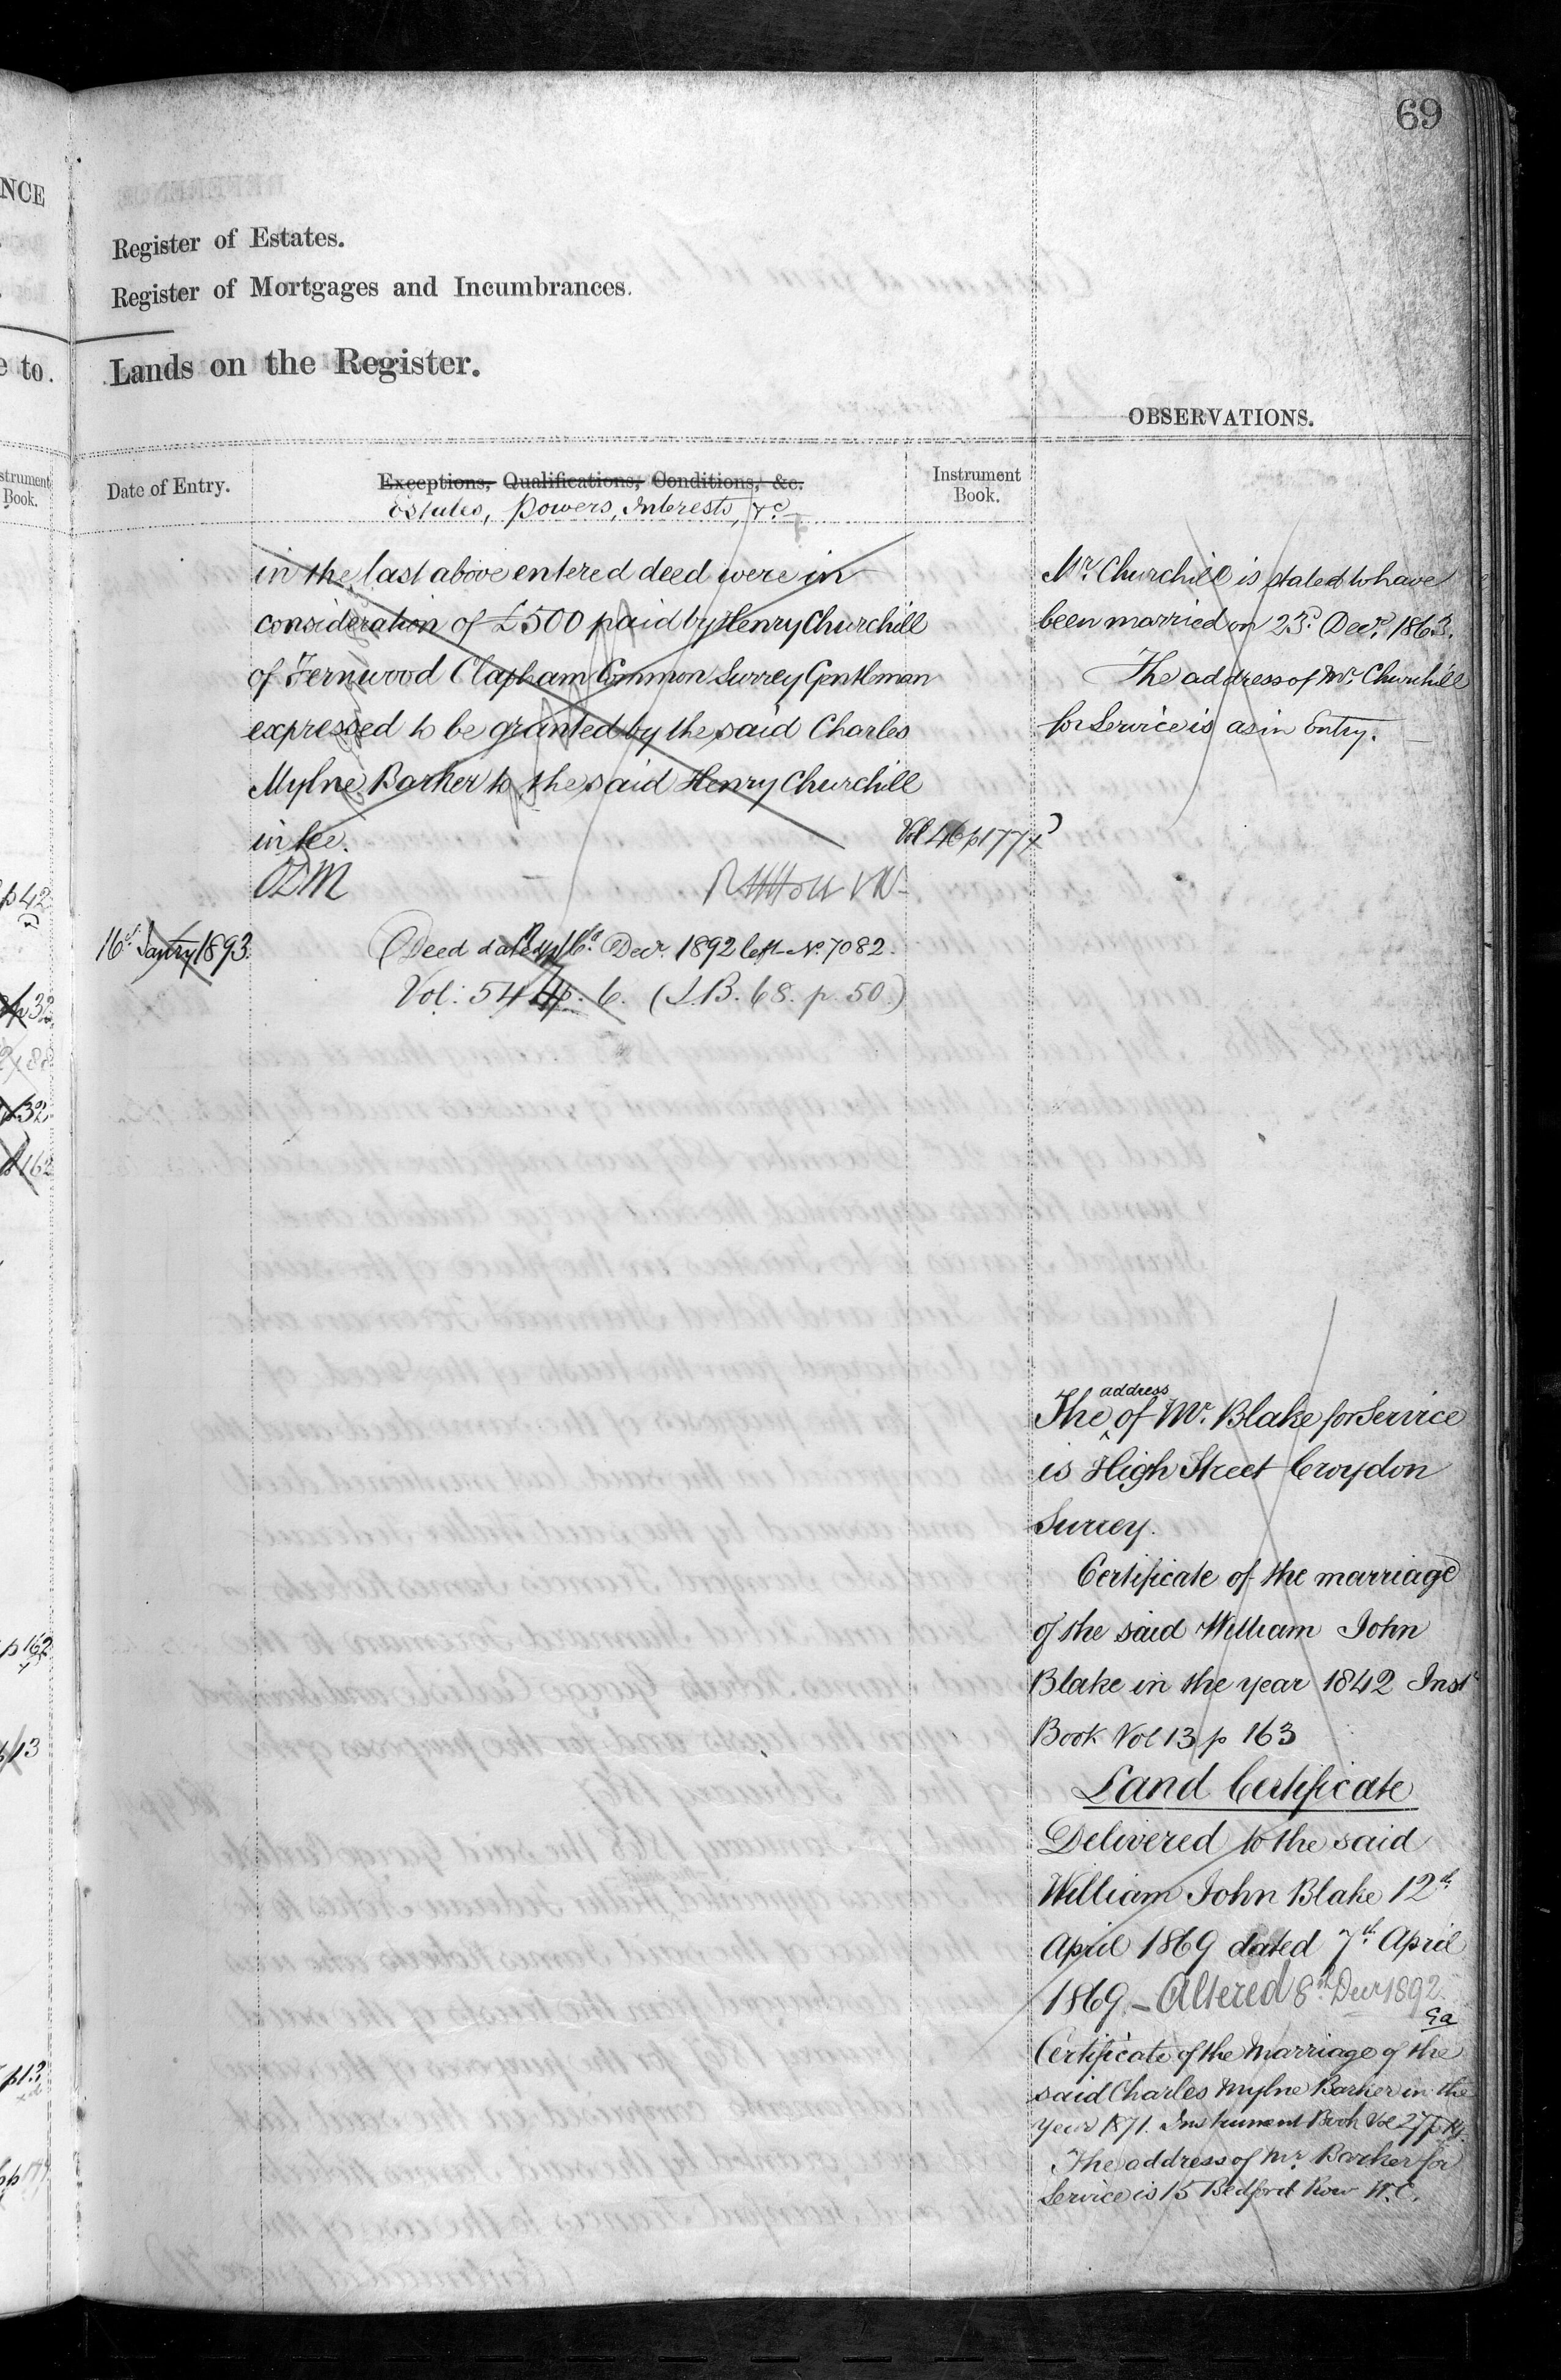 69
Register of Estates.
Register of Mortgages and Incumbrances.
Lands on the Register.
OBSERVATIONS.
Date of Entry.
Exceptions, Qualifications, Conditions, &c.
Estates, Powers, Interests, &c
Instrument
Book.
in the last above entered deed were in
consideration of £500 paid by Henry Churchill
of Fernwood Clapham Common Surrey Gentleman
expressed to be granted by the said Charles
Mylne Barker to the said Henry Churchill
in fee.
Vol 46 p 177
16th Janry 1893.
Deed dated 16th Decr. 1892 left No. 7082.
Vol: 54 p. 6. (I.B. 68. p. 50.)
Mr. Churchill is stated to have
been married on 23d. Decr. 1863.
The address of Mr. Churchill
for Service is as in Entry.
The address of Mr. Blake for Service
is High Street Croydon
Surrey.
Certificate of the marriage
of the said William John
Blake in the year 1842 Inst
Book Vol 13 p 163
Land Certificate
Delivered to the said
William John Blake 12th
April 1869 dated 7th April
1869 – Altered 8th Decr 1892.
Certificate of the Marriage of the
said Charles Mylne Barker in the
Year 1871. Instrument Book Vol 27 p
The address of Mr. Barker for
Service is 15 Bedford Row W.C.
NCE
e to.
strument
Book.
p 42
p 32
p 162
p 13